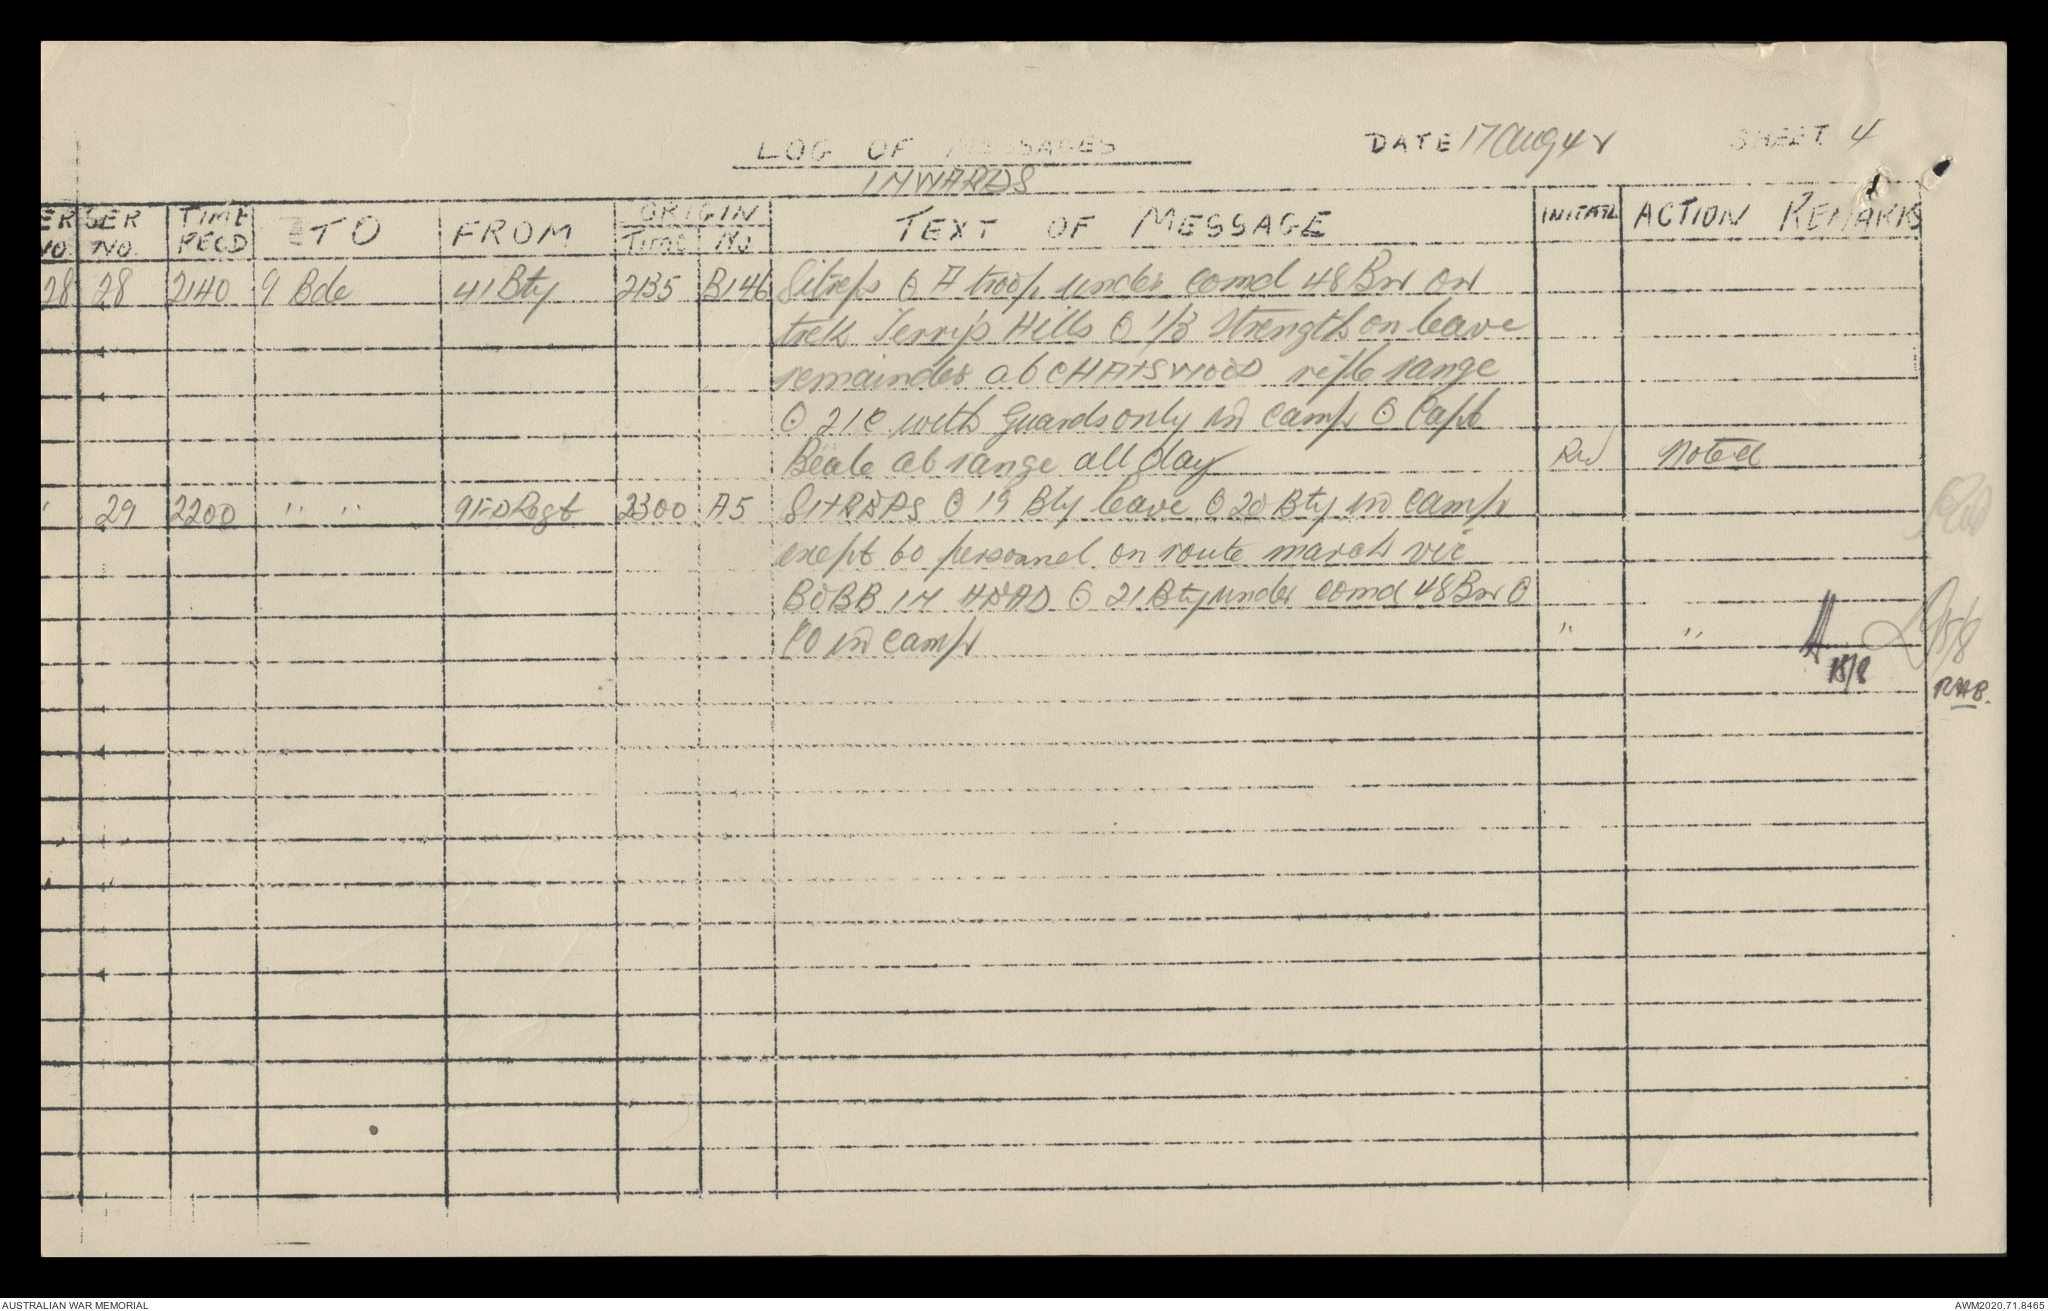 LOG OF MESSAGES
INWARDS
DATE 17 Aug 42
SHEET 4
SER NO. TIME RECD TO FROM ORIGIN TIME No TEXT OF MESSAGE INITIAL ACTION REMARKS
28 28 2140 9 Bde 41 Bty 2135 B146 Sitreps ⊙ A troop under comd 48 Bn on
trek Terry's Hills ⊙ 1/3 strength on leave
remainder at CHATSWOOD rifle range
⊙ 2 I C with guards only in camp ⊙ Capt
Beale at range all day Noted
" 29 2200 " " 9 FD Regt 2300 A5 SITREPS ⊙ 19 Bty leave ⊙ 20 Bty in camp
exept 60 personnel on route march vic
BOBBIN HEAD ⊙ 21 Bty under comd 48 Bn ⊙
CO in camp " "
18/8
RHB.
AUSTRALIAN WAR MEMORIAL
AWM2020.71.8465